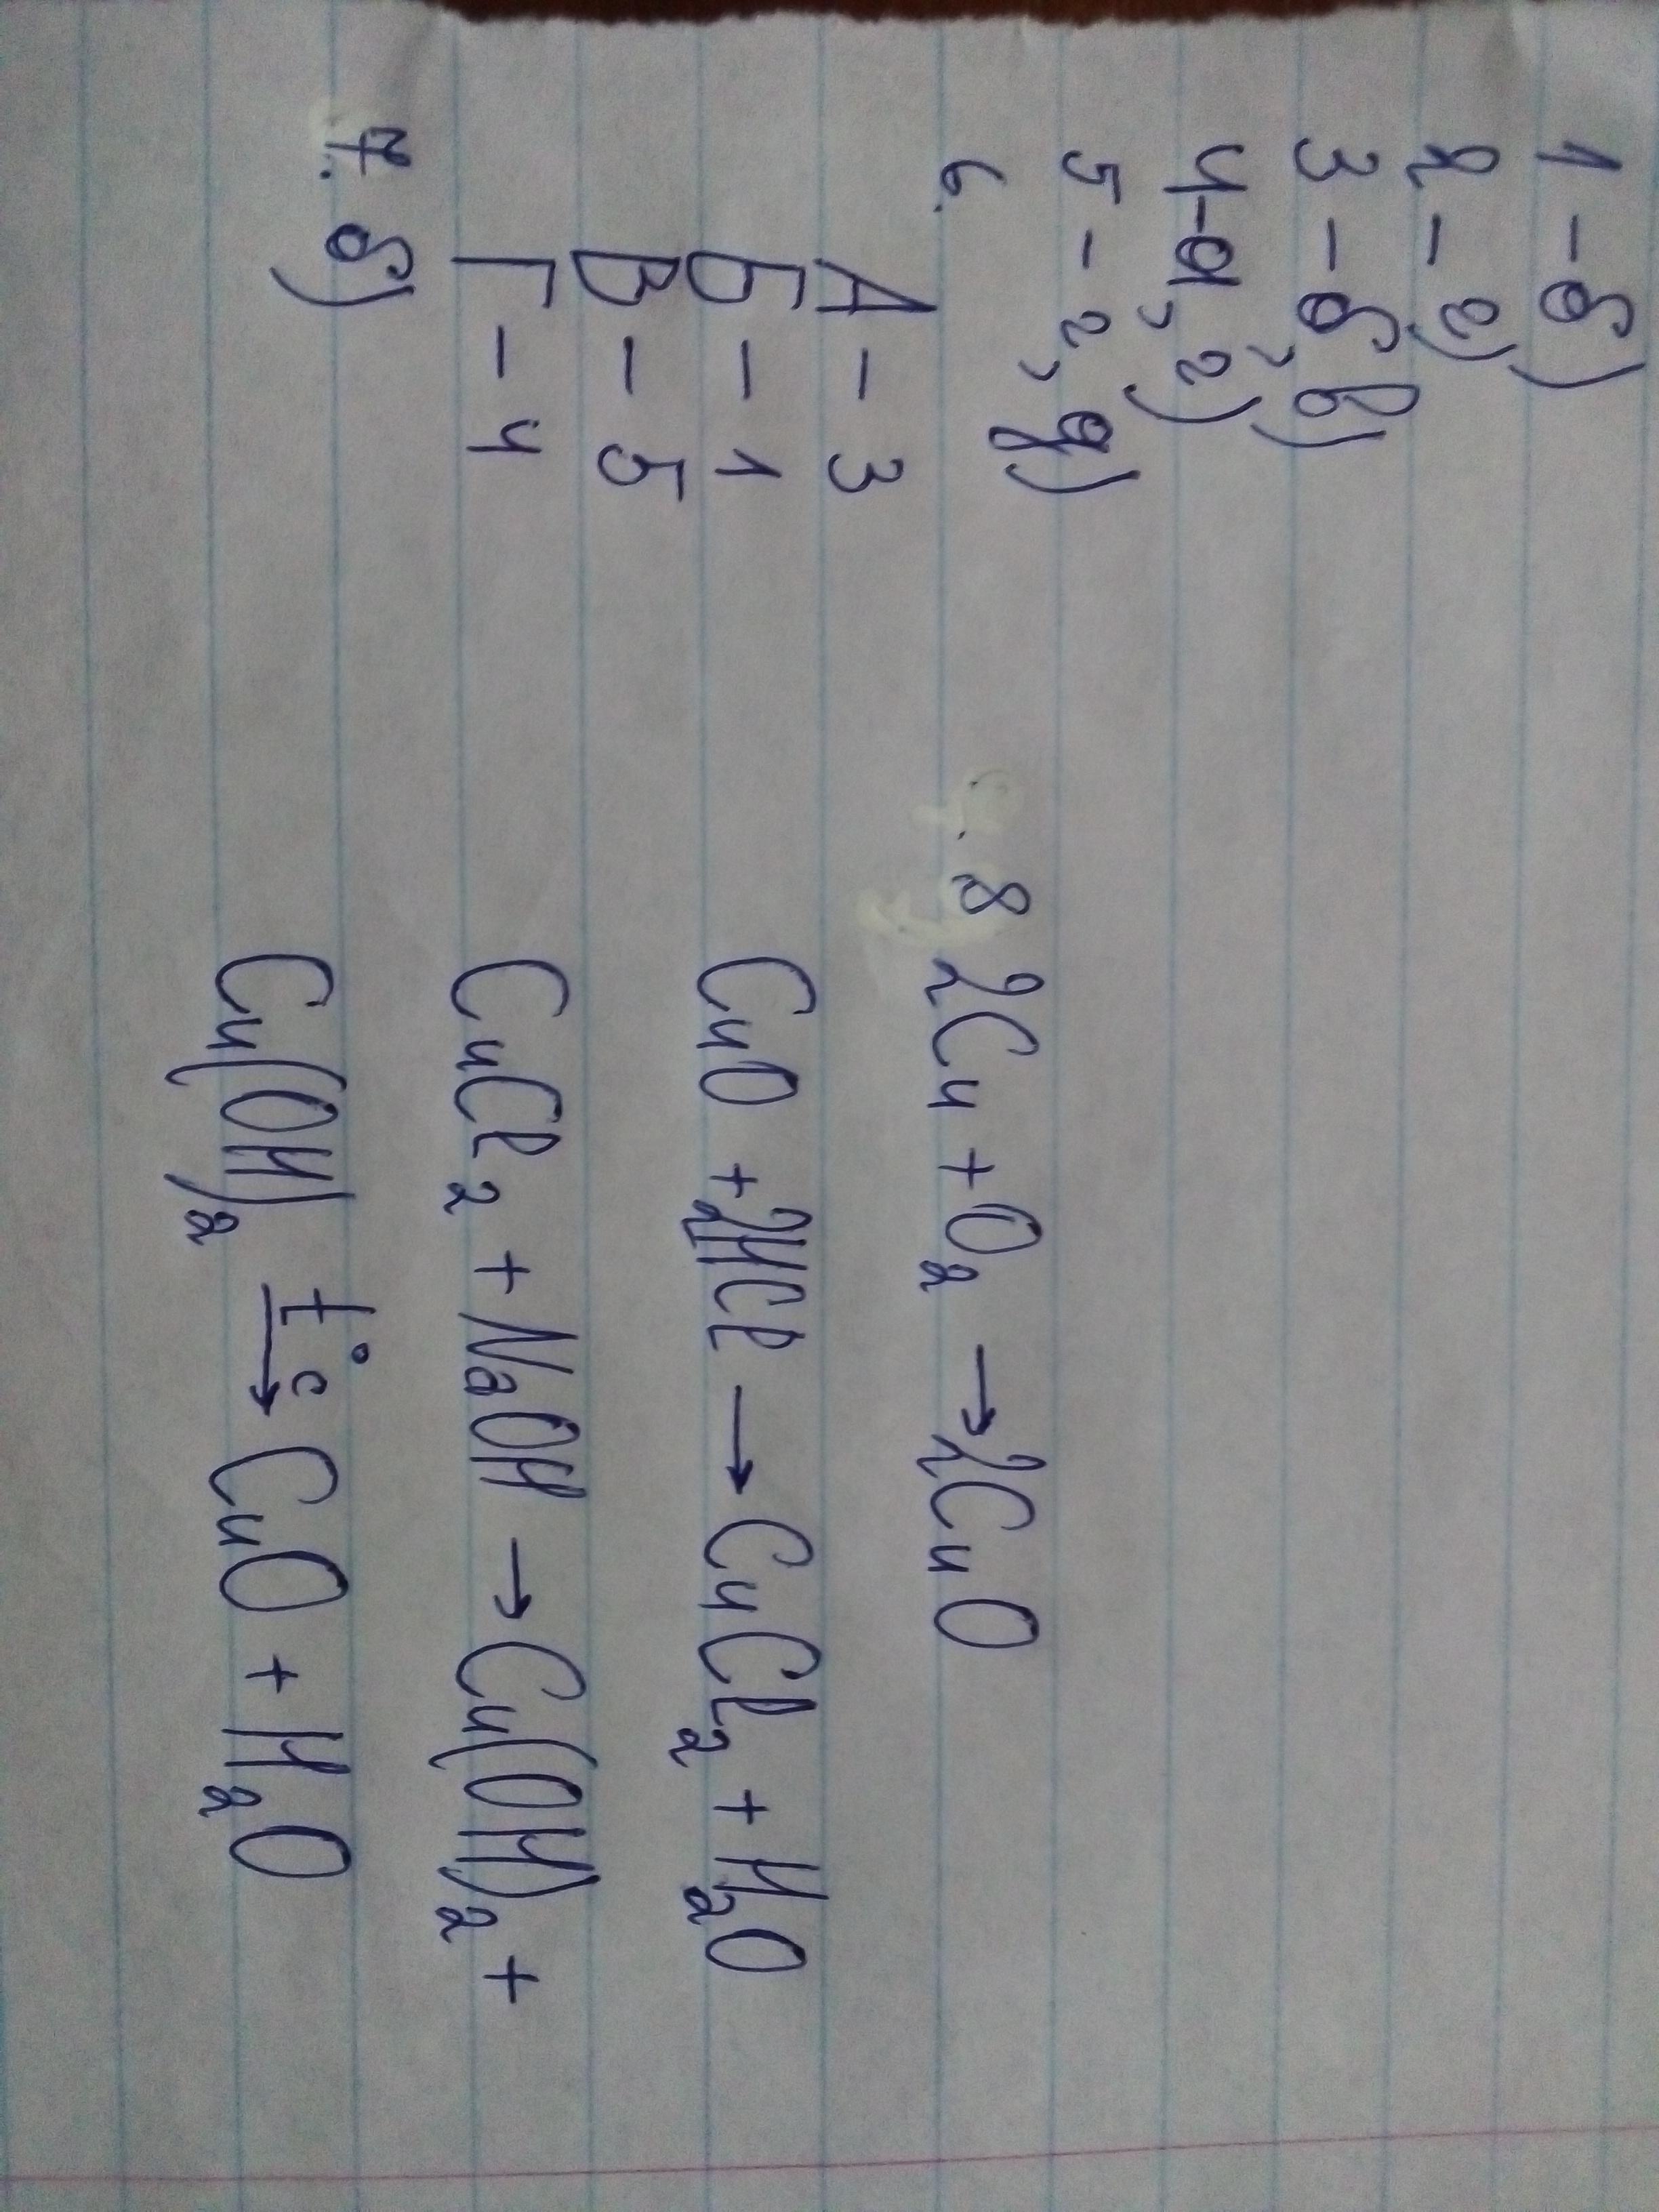 1 - б)
2 - г)
3 - б, в)
4 - а, г)
5 - г, д)
6.
А - 3
Б - 1
В - 5
Г - 4
7. б)
8 2Cu + O₂ → 2CuO
CuO + 2HCl → CuCl₂ + H₂O
CuCl₂ + NaOH → Cu(OH)₂ +
Cu(OH)₂ t°c→ CuO + H₂O